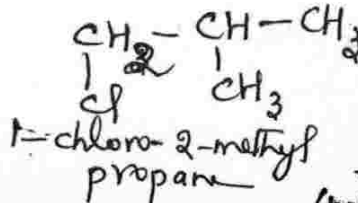 CH2 - CH - CH3
Cl CH3
1-chloro-2-methyl
propane